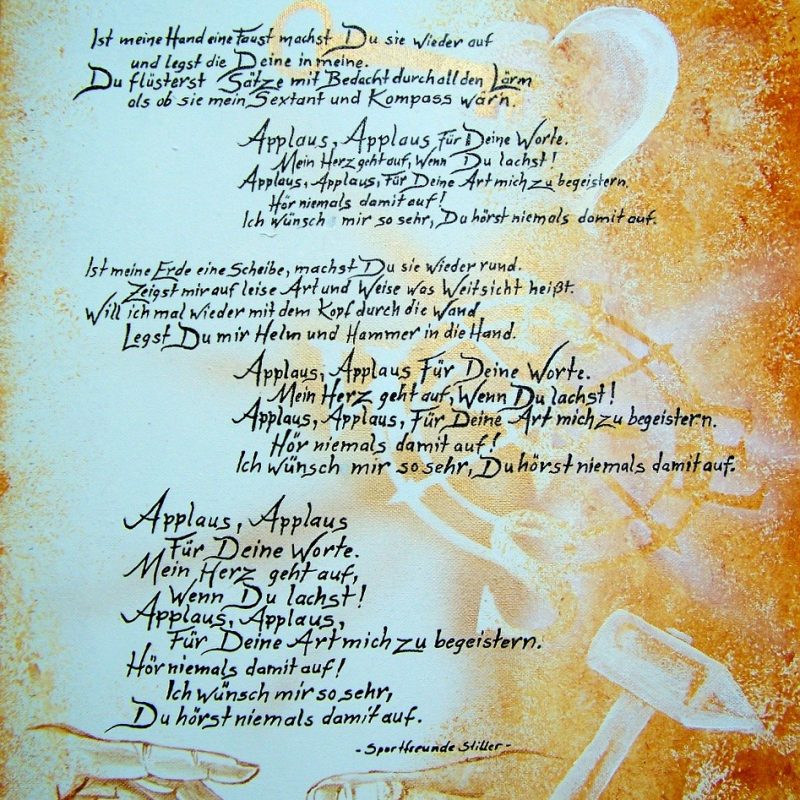 Ist meine Hand eine Faust machst Du sie wieder auf
und legst die Deine in meine.
Du flüsterst Sätze mit Bedacht durch all den Lärm
als ob sie mein Sextant und Kompass wär'n.
Applaus, Applaus Für Deine Worte.
Mein Herz geht auf, Wenn Du lachst!
Applaus, Applaus, Für Deine Art mich zu begeistern.
Hör niemals damit auf!
Ich Wünsch mir so sehr, Du hörst niemals damit auf.
Ist meine Erde eine Scheibe, machst Du sie wieder rund.
Zeigst mir auf leise Art und Weise was Weitsicht heißt.
Will ich mal wieder mit dem Kopf durch die Wand
Legst Du mir Helm und Hammer in die Hand.
Applaus, Applaus Für Deine Worte.
Mein Herz geht auf, Wenn Du lachst!
Applaus, Applaus, Für Deine Art mich zu begeistern.
Hör niemals damit auf!
Ich wünsch mir so sehr, Du hörst niemals damit auf.
Applaus, Applaus
Für Deine Worte.
Mein Herz geht auf,
Wenn Du lachst!
Applaus, Applaus,
Für Deine Art mich zu begeistern.
Hör niemals damit auf!
Ich wünsch mir so sehr,
Du hörst niemals damit auf.
- Sportfreunde Stiller -